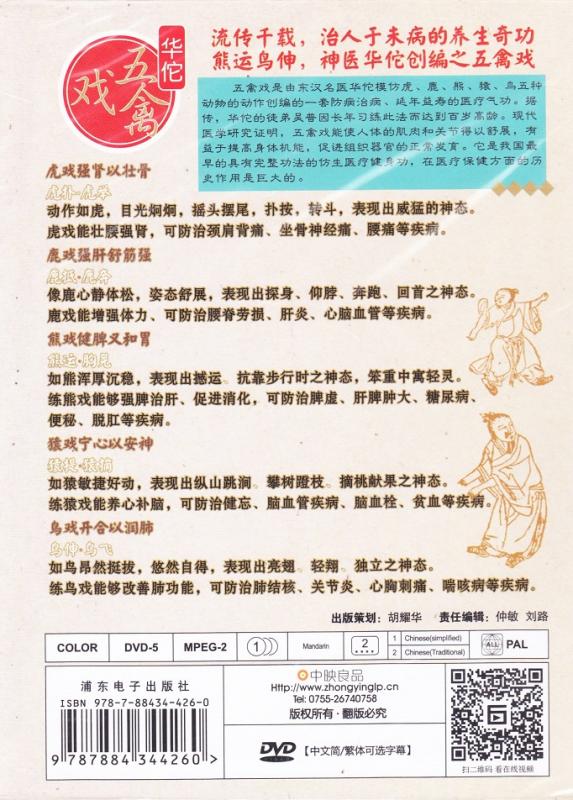 华佗
五禽戏
流传千载，治人于未病的养生奇功
熊运鸟伸，神医华佗创编之五禽戏
五禽戏是由东汉名医华佗模仿虎、鹿、熊、猿、鸟五种
动物的动作创编的一套防病治病、延年益寿的医疗气功。据
传，华佗的徒弟吴普因长年习练此法而达到百岁高龄。现代
医学研究证明，五禽戏能使人体的肌肉和关节得以舒展，有
益于提高身体机能，促进组织器官的正常发育。它是我国最
早的具有完整功法的仿生医疗健身功，在医疗保健方面的历
史作用是巨大的。
虎戏强肾以壮骨
虎扑·虎举
动作如虎，目光炯炯，摇头摆尾，扑按，转斗，表现出威猛的神态。
虎戏能壮腰强肾，可防治颈肩背痛、坐骨神经痛、腰痛等疾病。
鹿戏强肝舒筋强
鹿抵·鹿奔
像鹿心静体松，姿态舒展，表现出探身、仰脖、奔跑、回首之神态。
鹿戏能增强体力、可防治腰脊劳损、肝炎、心脑血管等疾病。
熊戏健脾又和胃
熊运·胸晃
如熊浑厚沉稳，表现出撼运。抗靠步行时之神态，笨重中寓轻灵。
练熊戏能够强脾治肝、促进消化，可防治脾虚、肝脾肿大、糖尿病、
便秘、脱肛等疾病。
猿戏宁心以安神
猿提·猿摘
如猿敏捷好动，表现出纵山跳涧。攀树蹬枝。摘桃献果之神态。
练猿戏能养心补脑，可防治健忘、脑血管疾病、脑血栓、贫血等疾病。
鸟戏开合以润肺
鸟伸·鸟飞
如鸟昂然挺拔，悠然自得，表现出亮翅。轻翔。独立之神态。
练鸟戏能够改善肺功能，可防治肺结核、关节炎、心胸刺痛、喘咳病等疾病。
出版策划：胡耀华 责任编辑：仲敏 刘路
COLOR DVD-5 MPEG-2 1 Mandarin 2 1 Chinese(simplified) 2 Chinese(Traditional) ALL PAL
浦东电子出版社
ISBN 978-7-88434-426-0
9 787884 344260 >
中映良品
Http://www.zhongyinglp.cn
Tel: 0755-26740758
版权所有·翻版必究
DVD VIDEO 【中文简/繁体可选字幕】
扫二维码 看在线视频